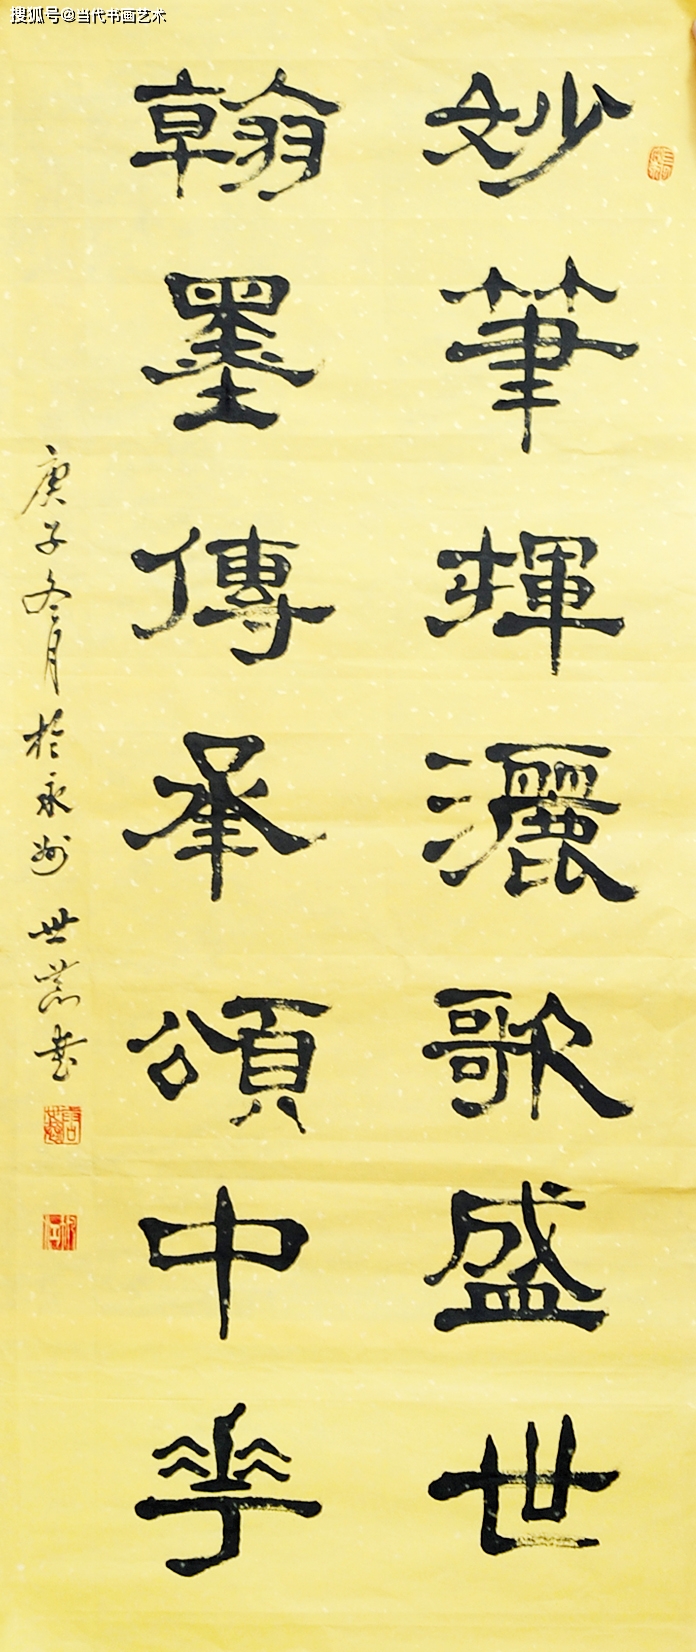 搜狐号@当代书画艺术
妙筆輝灑歌盛世
翰墨傳承頌中華
庚子冬月於永州世慧書